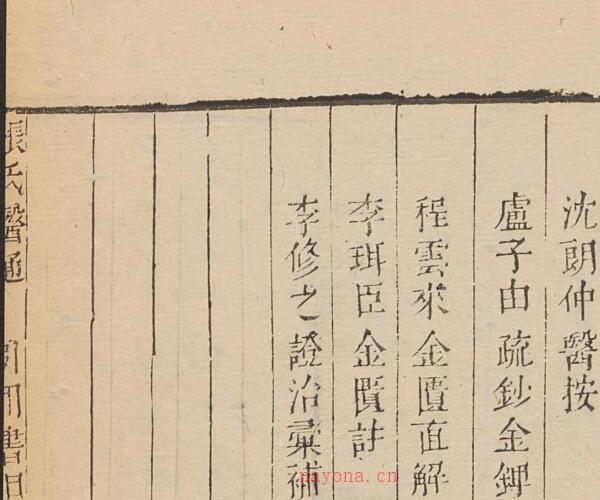 沈朗仲醫按
盧子由疏鈔金錍
程雲來金匱直解
李珥臣金匱註
李修之證治彙補
張氏醫通 引用書目
nayona.cn